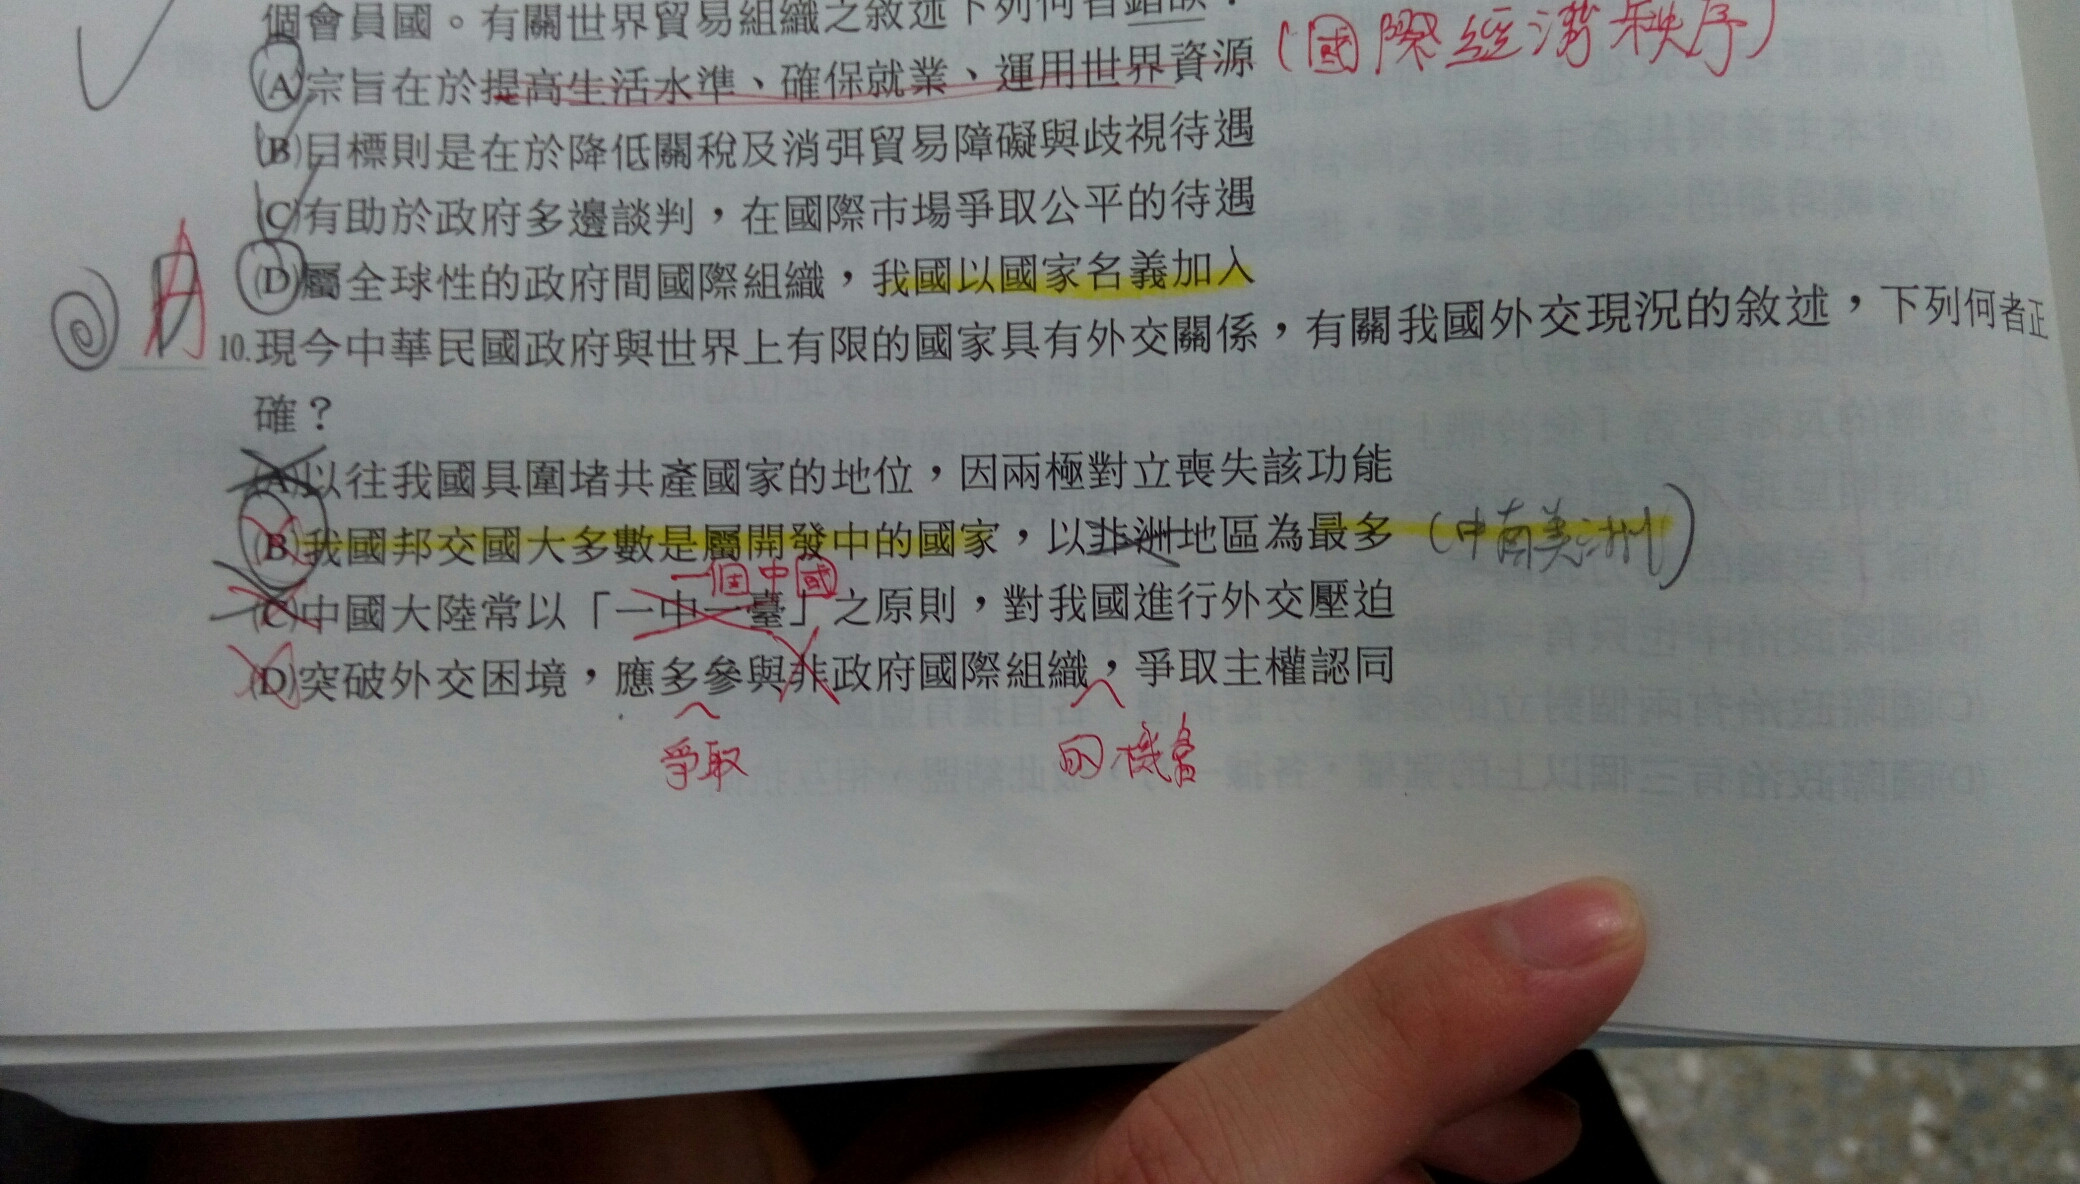 個會員國。有關世界貿易組織之敘述下列何者錯誤？
(國際經濟秩序)
(A)宗旨在於提高生活水準、確保就業、運用世界資源
(B)目標則是在於降低關稅及消弭貿易障礙與歧視待遇
(C)有助於政府多邊談判，在國際市場爭取公平的待遇
(D)屬全球性的政府間國際組織，我國以國家名義加入
A 10.現今中華民國政府與世界上有限的國家具有外交關係，有關我國外交現況的敘述，下列何者正
確？
(A)以往我國具圍堵共產國家的地位，因兩極對立喪失該功能
(B)我國邦交國大多數是屬開發中的國家，以非洲地區為最多 (中南美洲)
一個中國
(C)中國大陸常以「一中一臺」之原則，對我國進行外交壓迫
(D)突破外交困境，應多參與非政府國際組織，爭取主權認同
爭取 的機會